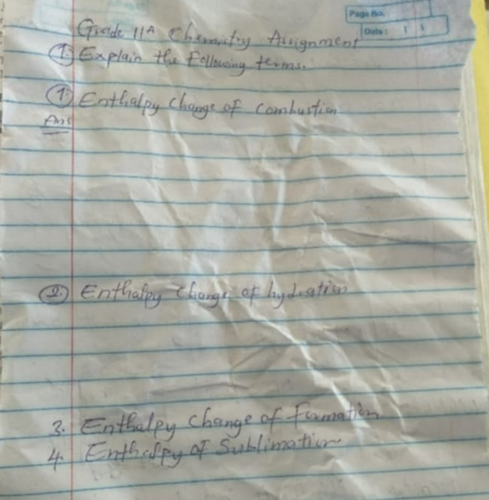 Page No.
Date:
Grade 11A Chemistry Assignment
① Explain the Following terms.
① Enthalpy Change of Combustion
Ans
② Enthalpy Change of hydration
3. Enthalpy Change of Formation
4. Enthalpy of Sublimation